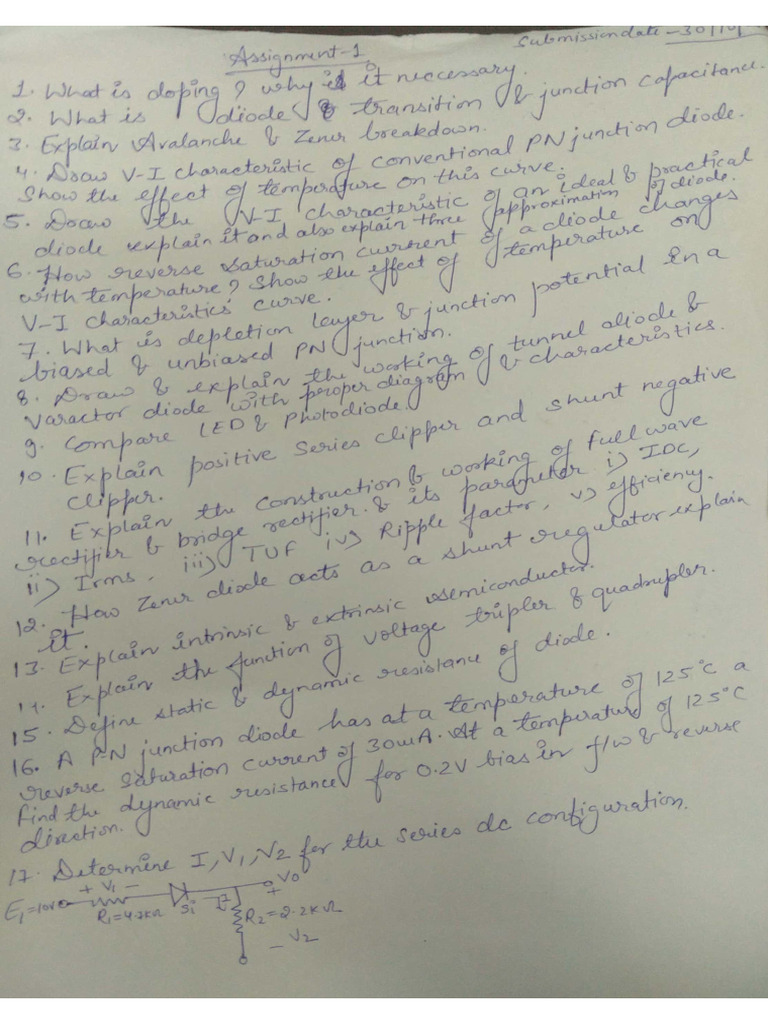 Assignment-1
Submission date - 30/10/
1. What is doping? why is it neccessary.
2. What is diode & transition & junction capacitance.
3. Explain Avalanche & Zener breakdown.
4. Draw V-I characteristic of conventional PN junction diode.
Show the effect of temperature on this curve.
5. Draw the V-I characteristic of an ideal & practical
diode explain it and also explain three approximation of diode.
6. How reverse saturation current of a diode changes
with temperature? Show the effect of temperature on
V-I characteristics curve.
7. What is depletion layer & junction potential in a
biased & unbiased PN junction.
8. Draw & explain the working of tunnel diode &
varactor diode with proper diagram & characteristics.
9. Compare LED & Photodiode.
10. Explain positive series clipper and shunt negative
clipper.
11. Explain the construction & working of full wave
rectifier & bridge rectifier & its parameter i) IDC,
ii) Irms, iii) TUF iv) Ripple factor, v) efficiency.
12. How Zener diode acts as a shunt regulator explain
it.
13. Explain intrinsic & extrinsic semiconductor.
14. Explain the function of voltage tripler & quadrupler.
15. Define static & dynamic resistance of diode.
16. A P-N junction diode has at a temperature of 125°C a
reverse saturation current of 30uA. At a temperature of 125°C
find the dynamic resistance for 0.2V bias in f/w & reverse
direction.
17. Determine I, V1, V2 for the series dc configuration.
+ V1 - V0
E1=10V R1=4.7KΩ Si I + R2=2.2KΩ
- V2